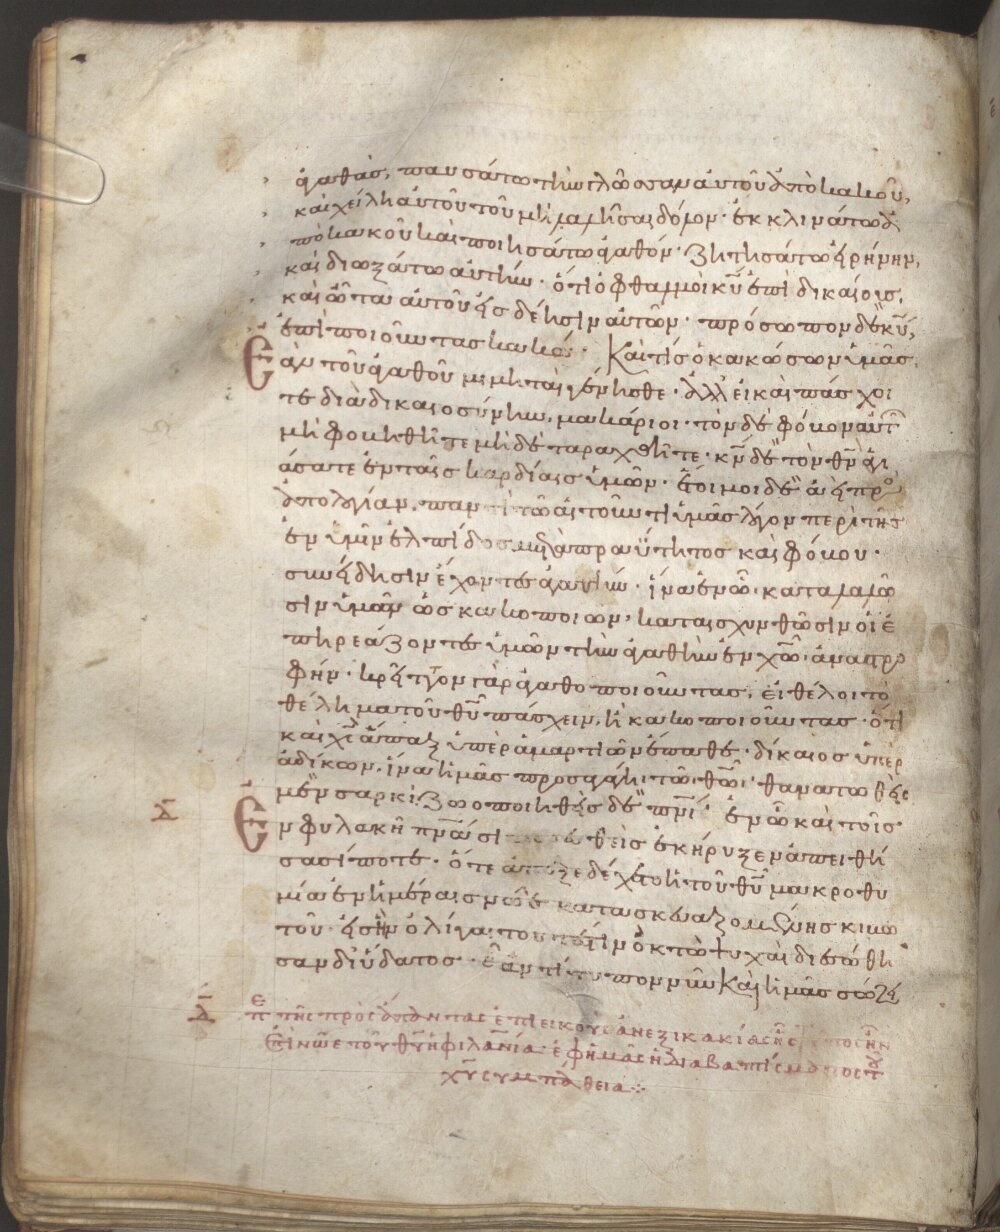 ἀγαθὰς, παυσάτω τὴν γλῶσσαν αὐτοῦ ἀπὸ κακοῦ,
καὶ χείλη αὐτοῦ τοῦ μὴ λαλῆσαι δόλον· ἐκκλινάτω ἀ
πὸ κακοῦ καὶ ποιησάτω ἀγαθόν· ζητησάτω εἰρήνην,
καὶ διωξάτω αὐτήν· ὅτι ὀφθαλμοὶ κ̅υ̅ ἐπὶ δικαίους,
καὶ ὦτα αὐτοῦ εἰς δέησιν αὐτῶν· πρόσωπον δὲ κ̅υ̅,
ἐπὶ ποιοῦντας κακά· Καὶ τίς ὁ κακώσων ὑμᾶς,
ἐὰν τοῦ ἀγαθοῦ μιμηταὶ γένησθε· ἀλλ εἰ καὶ πάσχοι
τε διὰ δικαιοσύνην, μακάριοι· τὸν δὲ φόβον αὐτ
μὴ φοβηθῆτε μηδὲ ταραχθῆτε· κ̅ν̅ δὲ τὸν θ̅ν̅ ἁγι
άσατε ἐν ταῖς καρδίαις ὑμῶν· ἕτοιμοι δὲ ἀεὶ πρὸ
ἀπολογίαν, παντὶ τῶ αἰτοῦντι ὑμᾶς λόγον περὶ τῆς
ἐν ὑμῖν ἐλπίδος μετὰ πραΰτητος καὶ φόβου·
συνείδησιν ἔχοντες ἀγαθήν· ἵνα ἐν ὧ καταλαλῶ
σιν ὑμῶν ὡς κακοποιῶν, καταισχυνθῶσιν οἱ ἐ
πηρεάζοντες ὑμῶν τὴν ἀγαθὴν ἐν χ̅ω̅ ἀναστρο
φήν· κρεῖττον γὰρ ἀγαθοποιοῦντας, εἰ θέλοι τὸ
θέλημα τοῦ θ̅υ̅ πάσχειν, ἢ κακοποιοῦντας· ὅτι
καὶ χ̅ς̅ ἅπαξ ὑπὲρ ἁμαρτιῶν ἔπαθε· δίκαιος ὑπὲρ
ἀδίκων, ἵνα ἡμᾶς προσαγάγη τῶ θ̅ω̅· θανατωθεὶς
μὲν σαρκὶ ζωοποιηθεὶς δὲ π̅ν̅ι̅ ἐν ὧ καὶ τοῖς
ἐν φυλακῆ π̅ν̅α̅σι πορευθεὶς ἐκήρυξεν ἀπειθή
σασί ποτε· ὅτε ἀπεξεδέχετο ἡ τοῦ θ̅υ̅ μακροθυ
μία ἐν ἡμέραις νῶε κατασκευαζομένης κιβω
τοῦ· εἰς ἣν ὀλίγαι τουτέστιν ὀκτὼ ψυχαὶ διεσώθη
σαν δι ὕδατος· ὃ ἀντίτυπον νῦν καὶ ἡμᾶς σώζει
χ̅υ̅ συμπάθεια